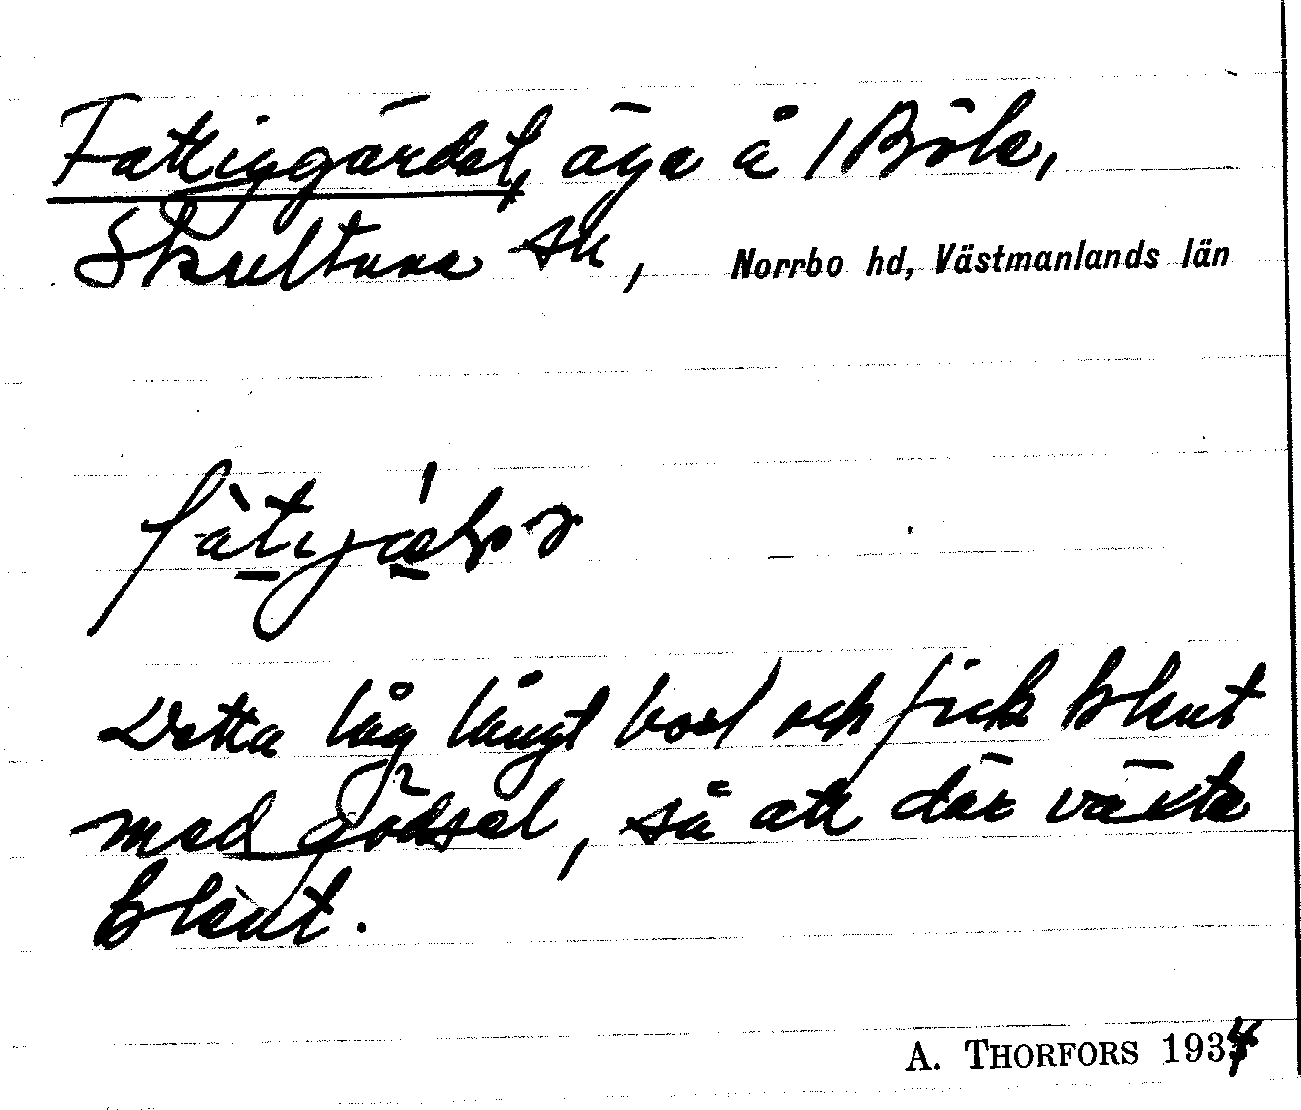 Fattiggärdet, äga å 1 Böle,
Skultuna sn, Norrbo hd, Västmanlands län
Detta låg långt bort och fick klent
med gödsel, så att där växte
klent.
A. THORFORS 1934